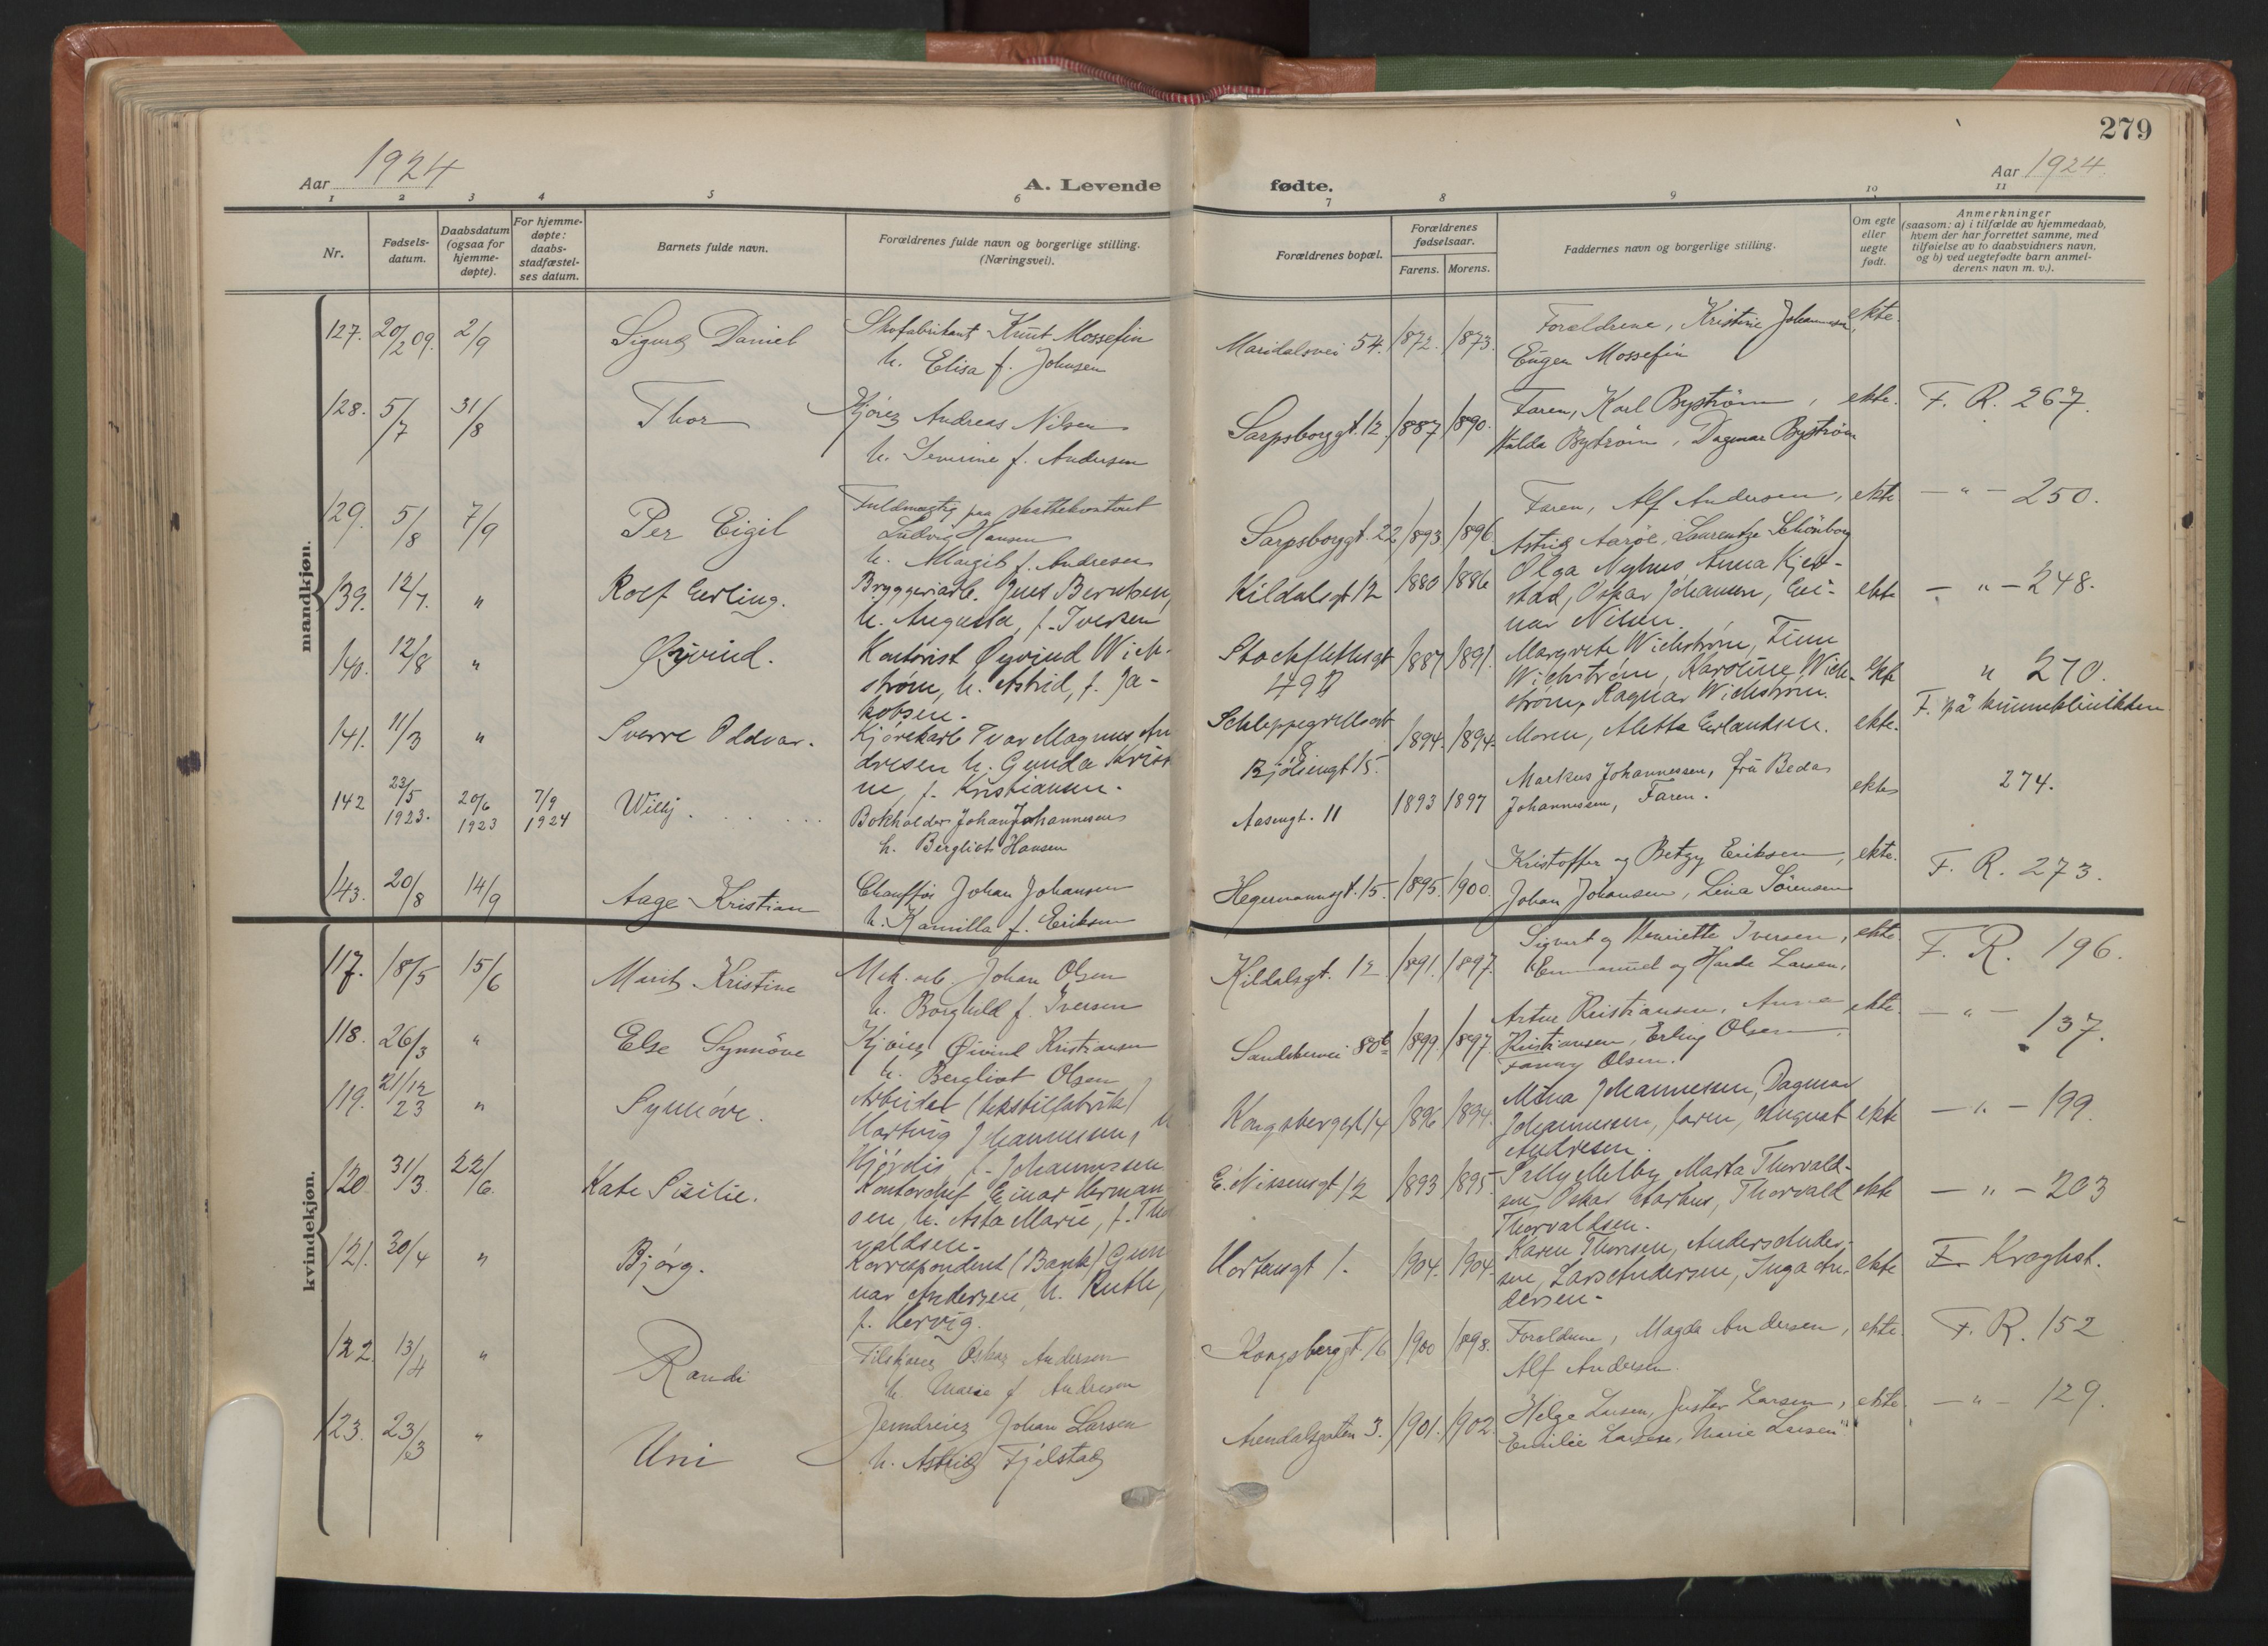 279
Aar 1924
A. Levende fødte.
Aar 1924
1 2 3 4 5 6 7 8 9 10 11
Nr.
Fødsels-
datum.
Daabsdatum
(ogsaa for
hjemme-
døpte).
For hjemme-
døpte:
daabs-
stadfæstel-
ses datum.
Barnets fulde navn.
Forældrenes fulde navn og borgerlige stilling.
(Næringsvei).
Forældrenes bopæl.
Forældrenes
fødselsaar.
Farens. Morens.
Faddernes navn og borgerlige stilling.
Om egte
eller
uegte
født.
Anmerkninger
(saasom: a) i tilfælde av hjemmedaab,
hvem der har forrettet samme, med
tilføielse av to daabsvidners navn,
og b) ved uegtefødte barn anmel-
derens navn m. v.).
mandkjøn.
127. 20/2 09. 2/9 Sigurd Daniel
Skofabrikant Knut Mossefin
h. Elisa f. Johnsen
Maridalsvei 54. 1872. 1873.
Foreldrene, Kristine Johannesen,
Eugen Mossefin
ekte.
128. 5/7 31/8 Thor
Kjörer Andreas Nilsen
h. Severine f. Andersen
Sarpsborggt. 12. 1887 1890.
Faren, Karl Byström,
Hulda Byström, Dagmar Byström
ekte. F. R. 267.
129. 5/8 7/9 Per Eigil
Fuldmægtig paa skattekontoret
Ludvig Hansen
h. Margit f. Andresen
Sarpsborggt. 22 1893 1896
Faren, Alf Andersen,
Astrid Aaröe, Laurentze Schönborg
ekte — " — 250.
139. 12/7. " Rolf Erling.
Bryggeriarb. Jens Berntsen,
h. Augusta, f. Iversen
Kildalsgt 12 1880 1886
Olga Nyhus Anna Kjel-
stad, Oskar Johansen, Ei-
nar Nilsen.
ekte — " — 248.
140. 12/8 " Øyvind.
Kontorist Øyvind Wich-
strøm, h. Astrid, f. Ja-
kobsen.
Stockflethsgt
49 1887 1891.
Margrete Wichstrøm, Finn
Wichstrøm, Karoline Wich-
strøm, Ragnar Wichstrøm.
ekte " 270.
141. 11/3 " Sverre Oddvar.
Kjørekarl Ivar Magnus An-
dresen h. Gunda Kristi
ne, f. Kristiansen.
Schleppegrellsgt
8. 1894. 1894.
Bjölsengt 15.
Moren, Aletta Erlandsen. ekte.
F. på kvinneklinikken
142 23/5 1923. 20/6 1923 7/9 1924 Willy.
Bokholder Johan Johannesen
h. Bergliot Hansen
Aasengt. 11 1893 1897
Markus Johannessen, fru Beda
Johannessen, Faren.
ekte 274.
143. 20/8 14/9 Aage Kristian
Chauffør Johan Johansen
h. Kamilla f. Eriksen
Hegermannsgt. 15. 1895. 1900
Kristoffer og Betzy Eriksen,
Johan Johansen, Lina Sörensen
ekte. F. R. 273.
kvindekjøn.
117. 18/5 15/6 Marit Kristine
Mek. arb. Johan Olsen
h. Borghild f. Iversen
Kildalsgt. 12 1891. 1897.
Sigurd og Henriette Iversen,
Emmanuel og Harda Larsen,
ekte. F. R. 196.
118. 26/3 " Else Synnöve
Kjörer Öivind Kristiansen
h. Bergliot Olsen
Sandakervei 80b 1899. 1897.
Artur Kristiansen, Anna
Kristiansen, Erling Olsen
Fanny Olsen.
ekte. — " — 137.
119. 21/12 23 " Synnøve.
Arbeider (tekstilfabrik)
Hartvig Johannessen, h
Hjørdis, f. Johannessen
Kongsberggt 14 1896 1894.
Mina Johannessen, Dagmar
Johannessen, faren, August
Andresen.
ekte — " — 199.
120. 31/3. 22/6. Kate Sisilie.
Kontorchef Einar Herman
sen, h. Asta Marie, f. Thor
valdsen.
E. Nissensgt 12 1893 1895.
Sally Melby, Marta Thorvald-
sen, Oskar Markus, Thorvald
Thorvaldsen.
ekte — " — 203
121. 30/4 " Bjørg.
Korrespondent (Bank) Gun
nar Andersen, h. Ruth,
f. Hervig.
Hortensgt 1. 1904. 1904.
Karen Thorsen, Anders Ander-
sen, Lars Andersen, Inga An-
dersen.
ekte F. Kraghst.
122. 13/4 " Randi
Filskjærer Oskar Andersen
h. Marie f. Andresen
Kongsberggt. 16 1900 1898.
Foreldrene, Magda Andersen,
Alf Andersen.
ekte. F. R. 152
123. 23/3 " Uni
Jerndreier Johan Larsen
h. Astrid Fjelstad
Arendalsgaten 3. 1901. 1902
Helga Larsen, Gustav Larsen,
Emilie Larsen, Marie Larsen
ekte. — " — 129.